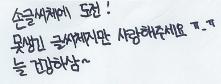 손글씨체에 도전!
못생긴 글씨체지만 사랑해주세요 ㅠ-ㅠ
늘 건강하삼~